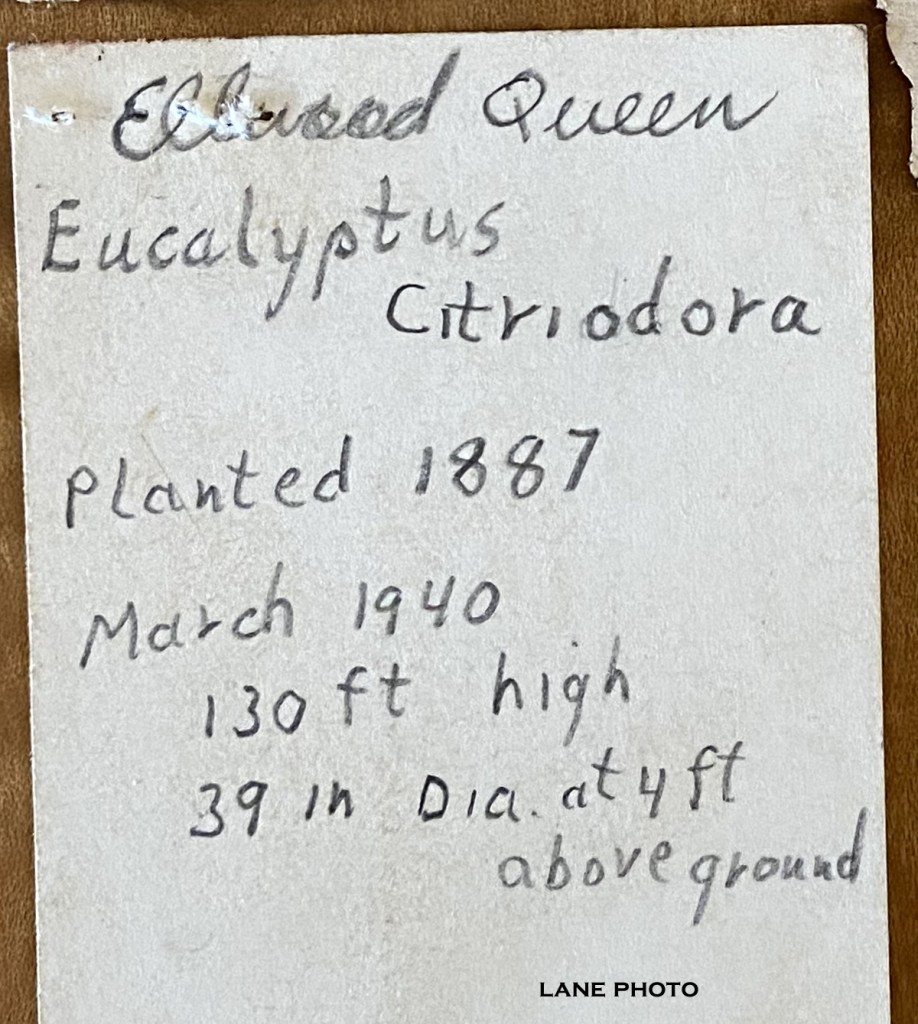 Ellwood Queen
Eucalyptus
Citriodora
Planted 1887
March 1940
130 ft high
39 in Dia. at 4 ft
above ground
LANE PHOTO